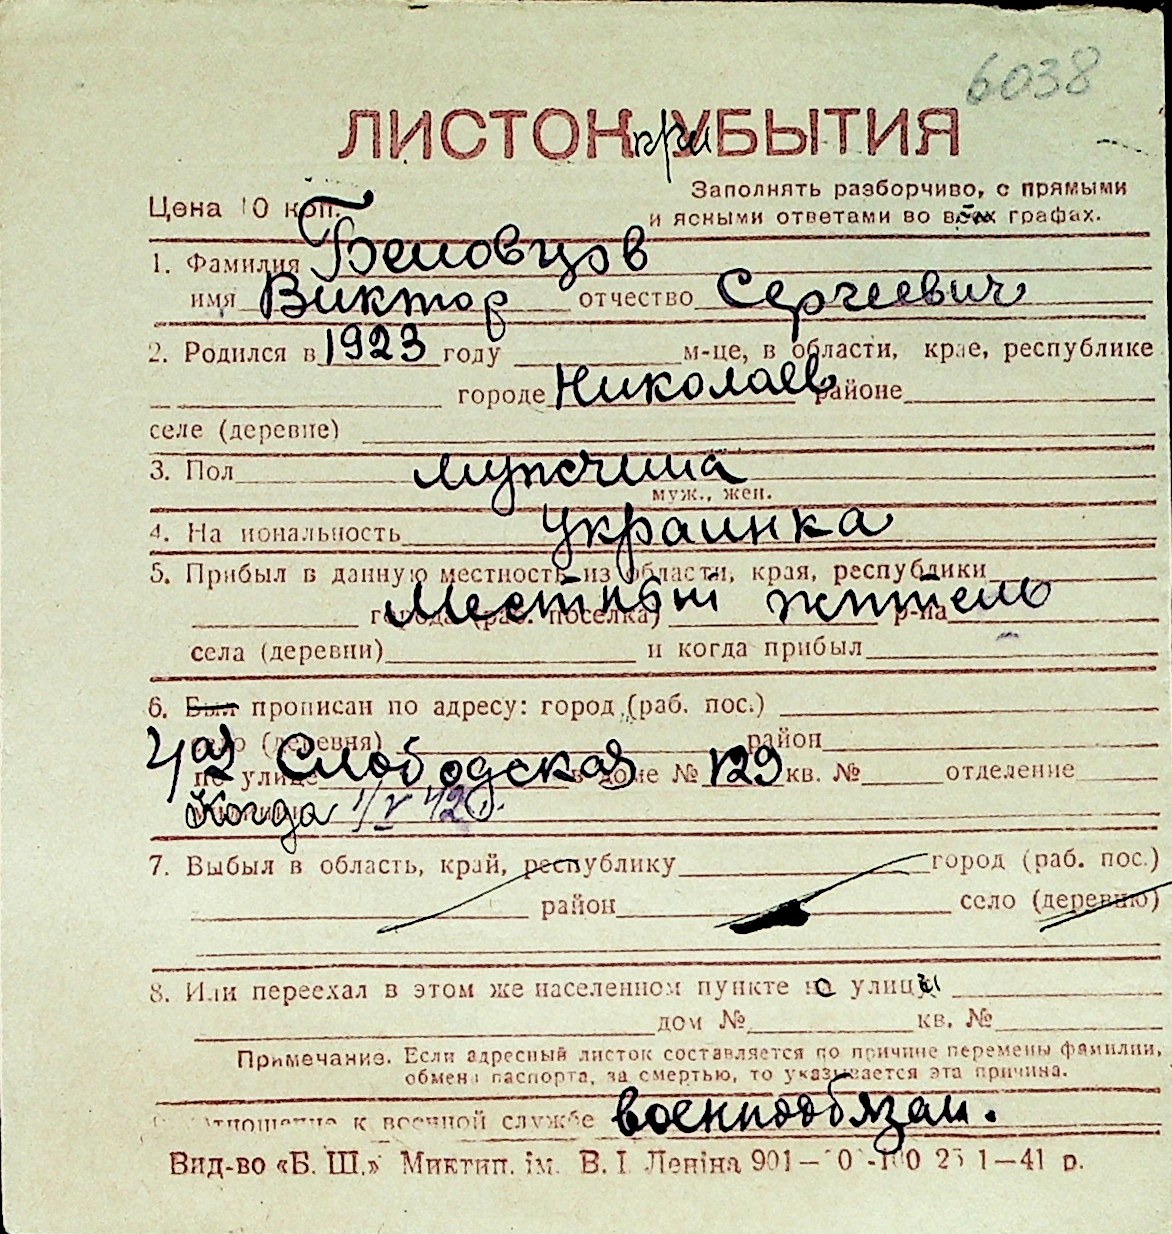 6038
ЛИСТОК при УБЫТИЯ
Заполнять разборчиво, с прямыми
и ясными ответами во всех графах.
Цена 10 коп.
1. Фамилия Беловцов
имя Виктор отчество Сергеевич
2. Родился в 1923 году м-це, в области, крае, республике
городе Николаев районе
селе (деревне)
3. Пол мужчина
муж., жен.
4. На иональность украинка
5. Прибыл в данную местность из области, края, республики
Местный житель
города (раб. поселка) р-на
села (деревни) и когда прибыл
6. Был прописан по адресу: город (раб. пос.)
село (деревня) район
по улице Слободская в доме № 129 кв. № отделение
Когда 1/V 42 г.
7. Выбыл в область, край, республику город (раб. пос.)
район село (деревню)
8. Или переехал в этом же населенном пункте с улицы
дом № кв. №
Примечание. Если адресный листок составляется по причине перемены фамилии,
обмена паспорта, за смертью, то указывается эта причина.
Отношение к военной службе военнообязан.
Вид-во «Б. Ш.» Миктип. ім. В. І. Леніна 901— 1—41 р.